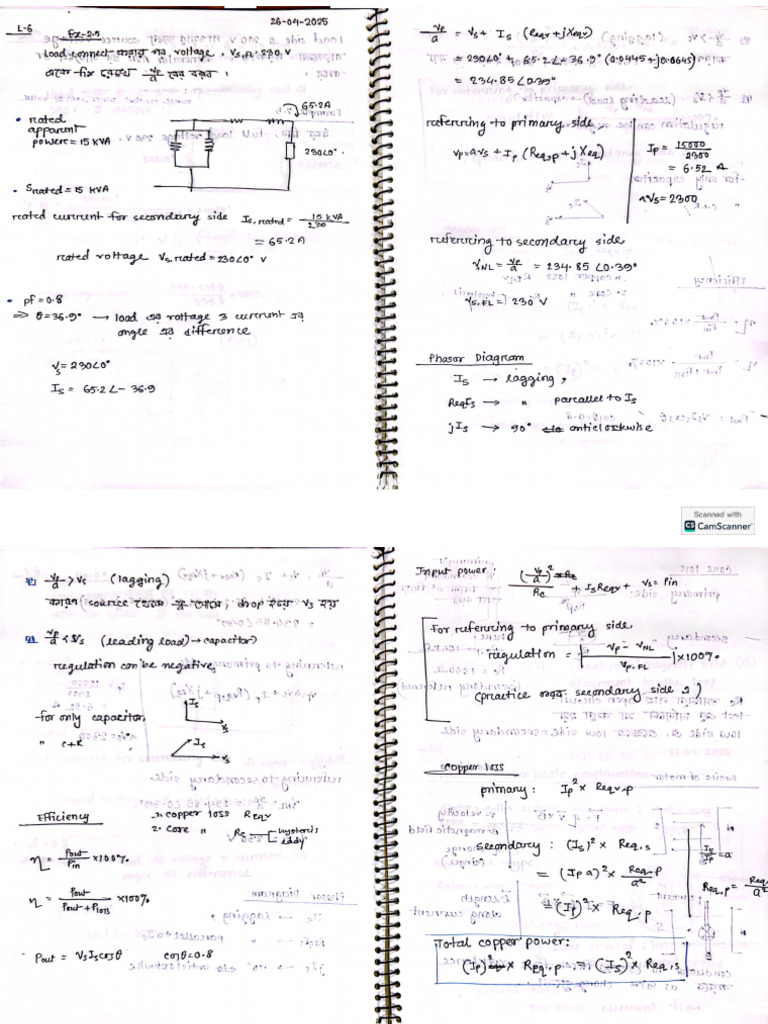 L-6
26-04-2025
Ex-2.5
Load connect করার পর, voltage, Vs,fl = 230 V
একে fix রেখে Vp/a বের করব।
• rated apparent power = 15 kVA
65.2A
230∠0°
• Srated = 15 kVA
rated current for secondary side Is,rated = 15 kVA/230
= 65.2 A
rated voltage Vs,rated = 230∠0° V
• pf = 0.8
⇒ θ = 36.9° → load এর voltage ও current এর angle এর difference
Vs = 230∠0°
Is = 65.2∠-36.9
Vp/a = Vs + Is (Reqv + jXeqv)
= 230∠0° + 65.2∠-36.9° (0.0445 + j0.0645)
= 234.85∠0.39°
referring to primary side
Vp = aVs + Ip (Req,p + jXeq)
Ip = 15000/2300
= 6.52 A
aVs = 2300
referring to secondary side
VNL = Vp/a = 234.85∠0.39°
Vs,FL = 230 V
Phasor Diagram
Is → lagging,
ReqIs → " parcallel to Is
jIs → 90° anticlockwise
Scanned with
CS CamScanner
Vp/a > Vs (lagging)
কারণ source থেকে drop হয়ে Vs হয়
Vp/a < Vs (leading load) → capacitor
regulation can be negative,
for only capacitor,
Is
Vs
" C+R
Is
Vs
Efficiency
1. copper loss Reqv
2. core " Rc → hysteris eddy
η = Pout/Pin × 100%
η = Pout/(Pout + Ploss) × 100%
• Pout = VsIscosθ cosθ = 0.8
Input power: (Vp/a)²/Rc + IsReqv + Vs = Pin
For referring to primary side,
regulation = | Vp - VNL / Vp,FL | × 100%
(practice করব secondary side এ)
Copper loss
primary: Ip² × Reqv,p
secondary: (Is)² × Req,s
= (Ip a)² × Req,p/a²
= (Ip)² × Req,p
Is/Ip = a
Req,s = Req/a²
Total copper power:
(Ip)² × REq,p = (Is)² × Req,s